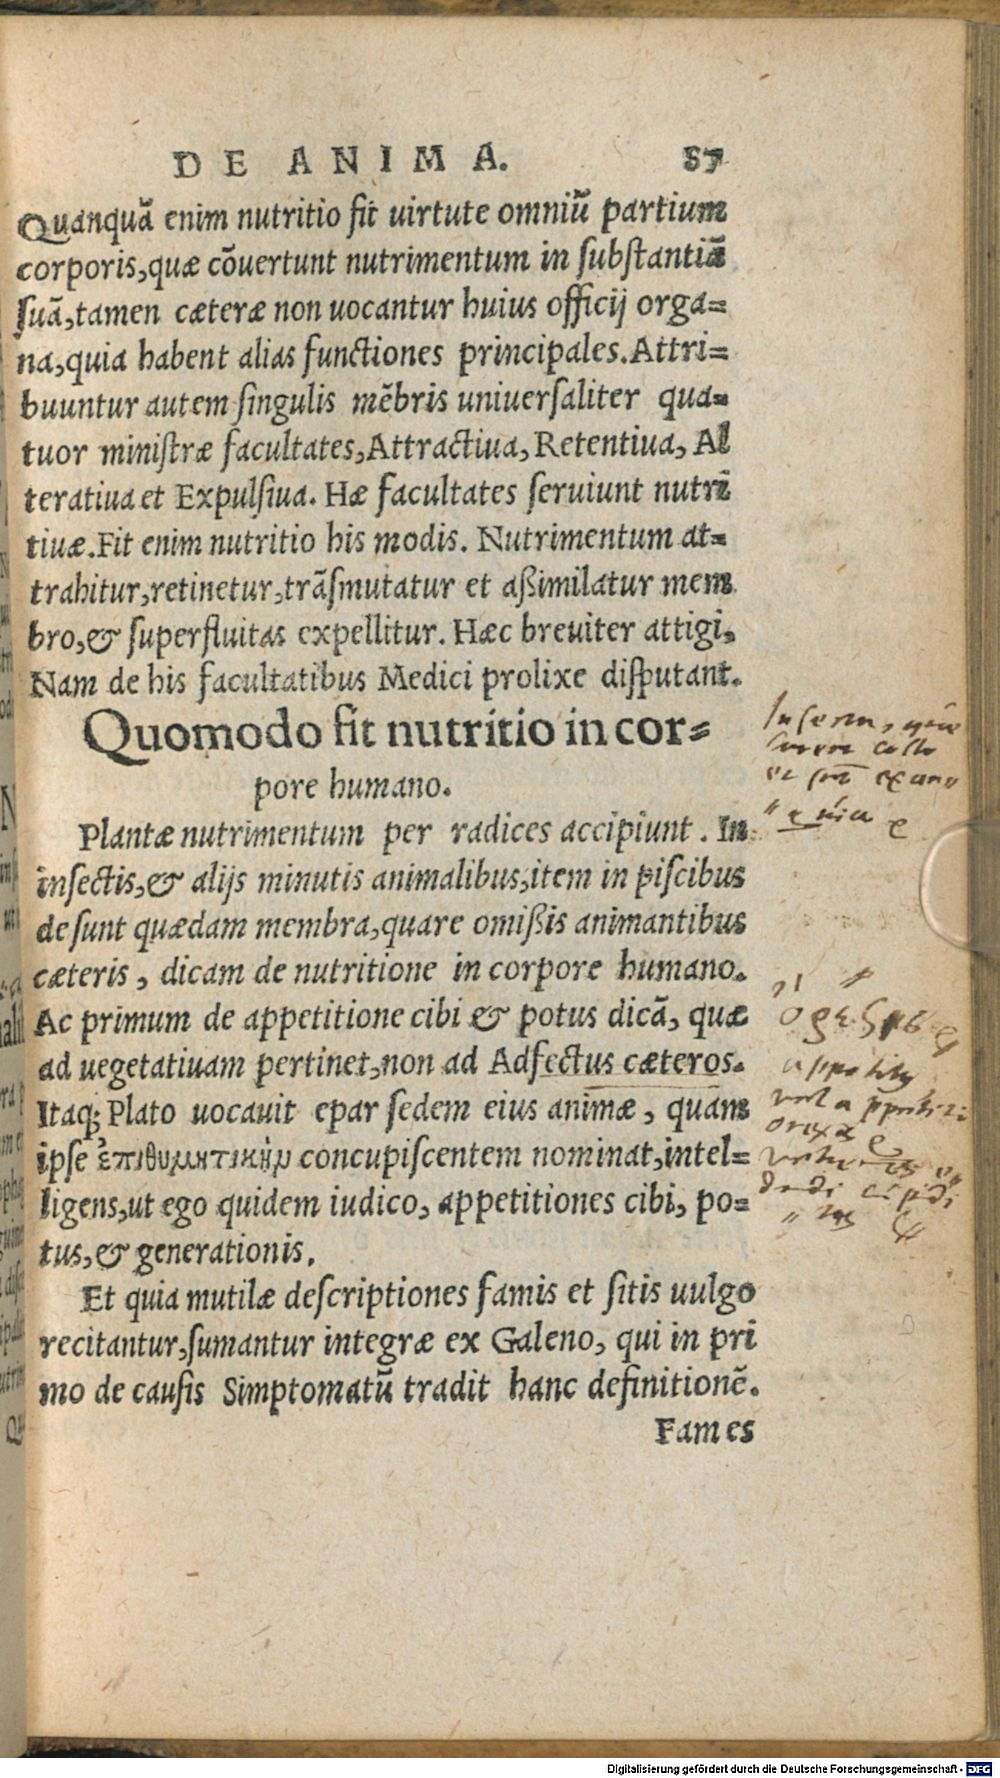 DE ANIMA. 87
Quanquã enim nutritio fit uirtute omniũ partium
corporis, quæ cõuertunt nutrimentum in substantiã
suã, tamen cæteræ non uocantur huius officij orga=
na, quia habent alias functiones principales. Attri=
buuntur autem singulis mẽbris uniuersaliter qua=
tuor ministræ facultates, Attractiua, Retentiua, Al
teratiua et Expulsiua. Hæ facultates seruiunt nutri
tiuæ. Fit enim nutritio his modis. Nutrimentum at=
trahitur, retinetur, trãsmutatur et aßimilatur mem
bro, & superfluitas expellitur. Hæc breuiter attigi,
Nam de his facultatibus Medici prolixe disputant.
Quomodo fit nutritio in cor=
pore humano.
Plantæ nutrimentum per radices accipiunt. In
insectis, & alijs minutis animalibus, item in piscibus
desunt quædam membra, quare omißis animantibus
cæteris, dicam de nutritione in corpore humano.
Ac primum de appetitione cibi & potus dicã, quæ
ad uegetatiuam pertinet, non ad Adfectus cæteros.
Itaq; Plato uocauit epar sedem eius animæ, quam
ipse ἐπιθυμητικὴν concupiscentem nominat, intel=
ligens, ut ego quidem iudico, appetitiones cibi, po=
tus, & generationis.
Et quia mutilæ descriptiones famis et sitis uulgo
recitantur, sumantur integræ ex Galeno, qui in pri
mo de causis Simptomatũ tradit hanc definitionẽ.
Fames
Digitalisierung gefördert durch die Deutsche Forschungsgemeinschaft - DFG